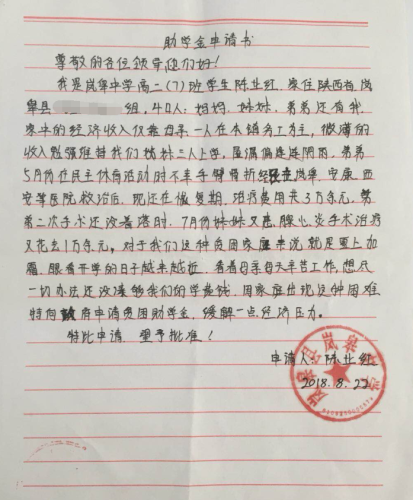 助学金申请书
尊敬的各位领导您们好!
我是岚皋中学高二(7)班学生陈业红,家住陕西省岚
皋县 组,4口人:妈妈、妹妹、弟弟还有我,
家中的经济收入仅靠母亲一人在本镇务工为主,微薄的
收入勉强维持我们姊妹三人上学,屋漏偏逢连阴雨,弟弟
5月份在民主体育活动时不幸手臂骨折经岚皋、安康、西
安等医院救治后,现还在恢复期,治疗费用共3万余元,弟
弟二次手术还没着落时,7月份妹妹又患 心炎手术治疗
又花去1万余元,对于我们这种贫困家庭来说就是雪上加
霜,眼看开学的日子越来越近,看着母亲每天辛苦工作,想尽
一切办法还没凑够我们的学费钱,因家庭出现这种困难
特向政府申请贫困助学金,缓解一点经济压力。
特此申请,望予批准!
申请人:陈业红
2018.8.22